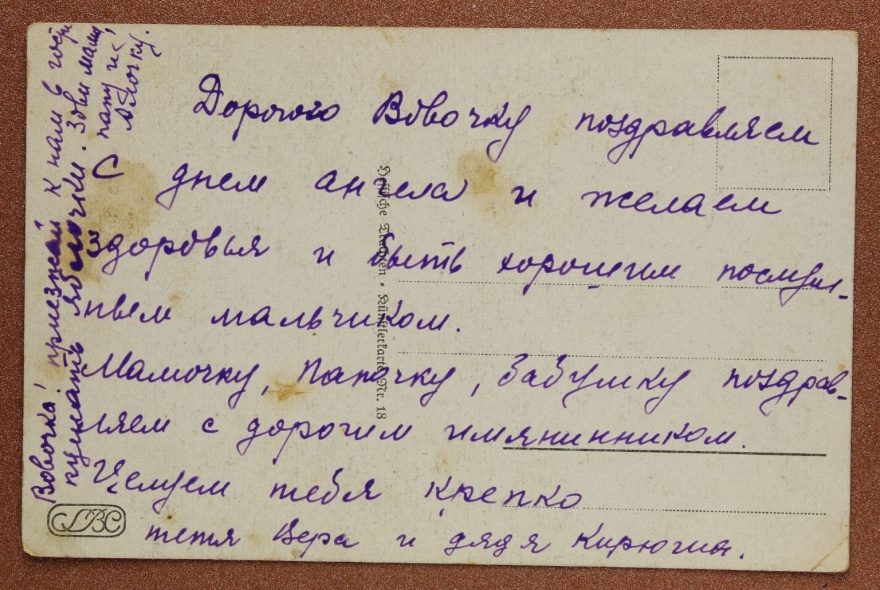 Дорогого Вовочку поздравляем
С днем ангела и желаем
здоровья и быть хорошим послуш-
ным мальчиком.
Мамочку, папочку, бабушку поздрав-
ляем с дорогим имянинником.
Целуем тебя крепко
тетя Вера и дядя
Вовочка! приезжай к нам в гости
кушать яблочки. Зови маму
папу и
Hessische Trachten • Künstlerkarte Nr. 18